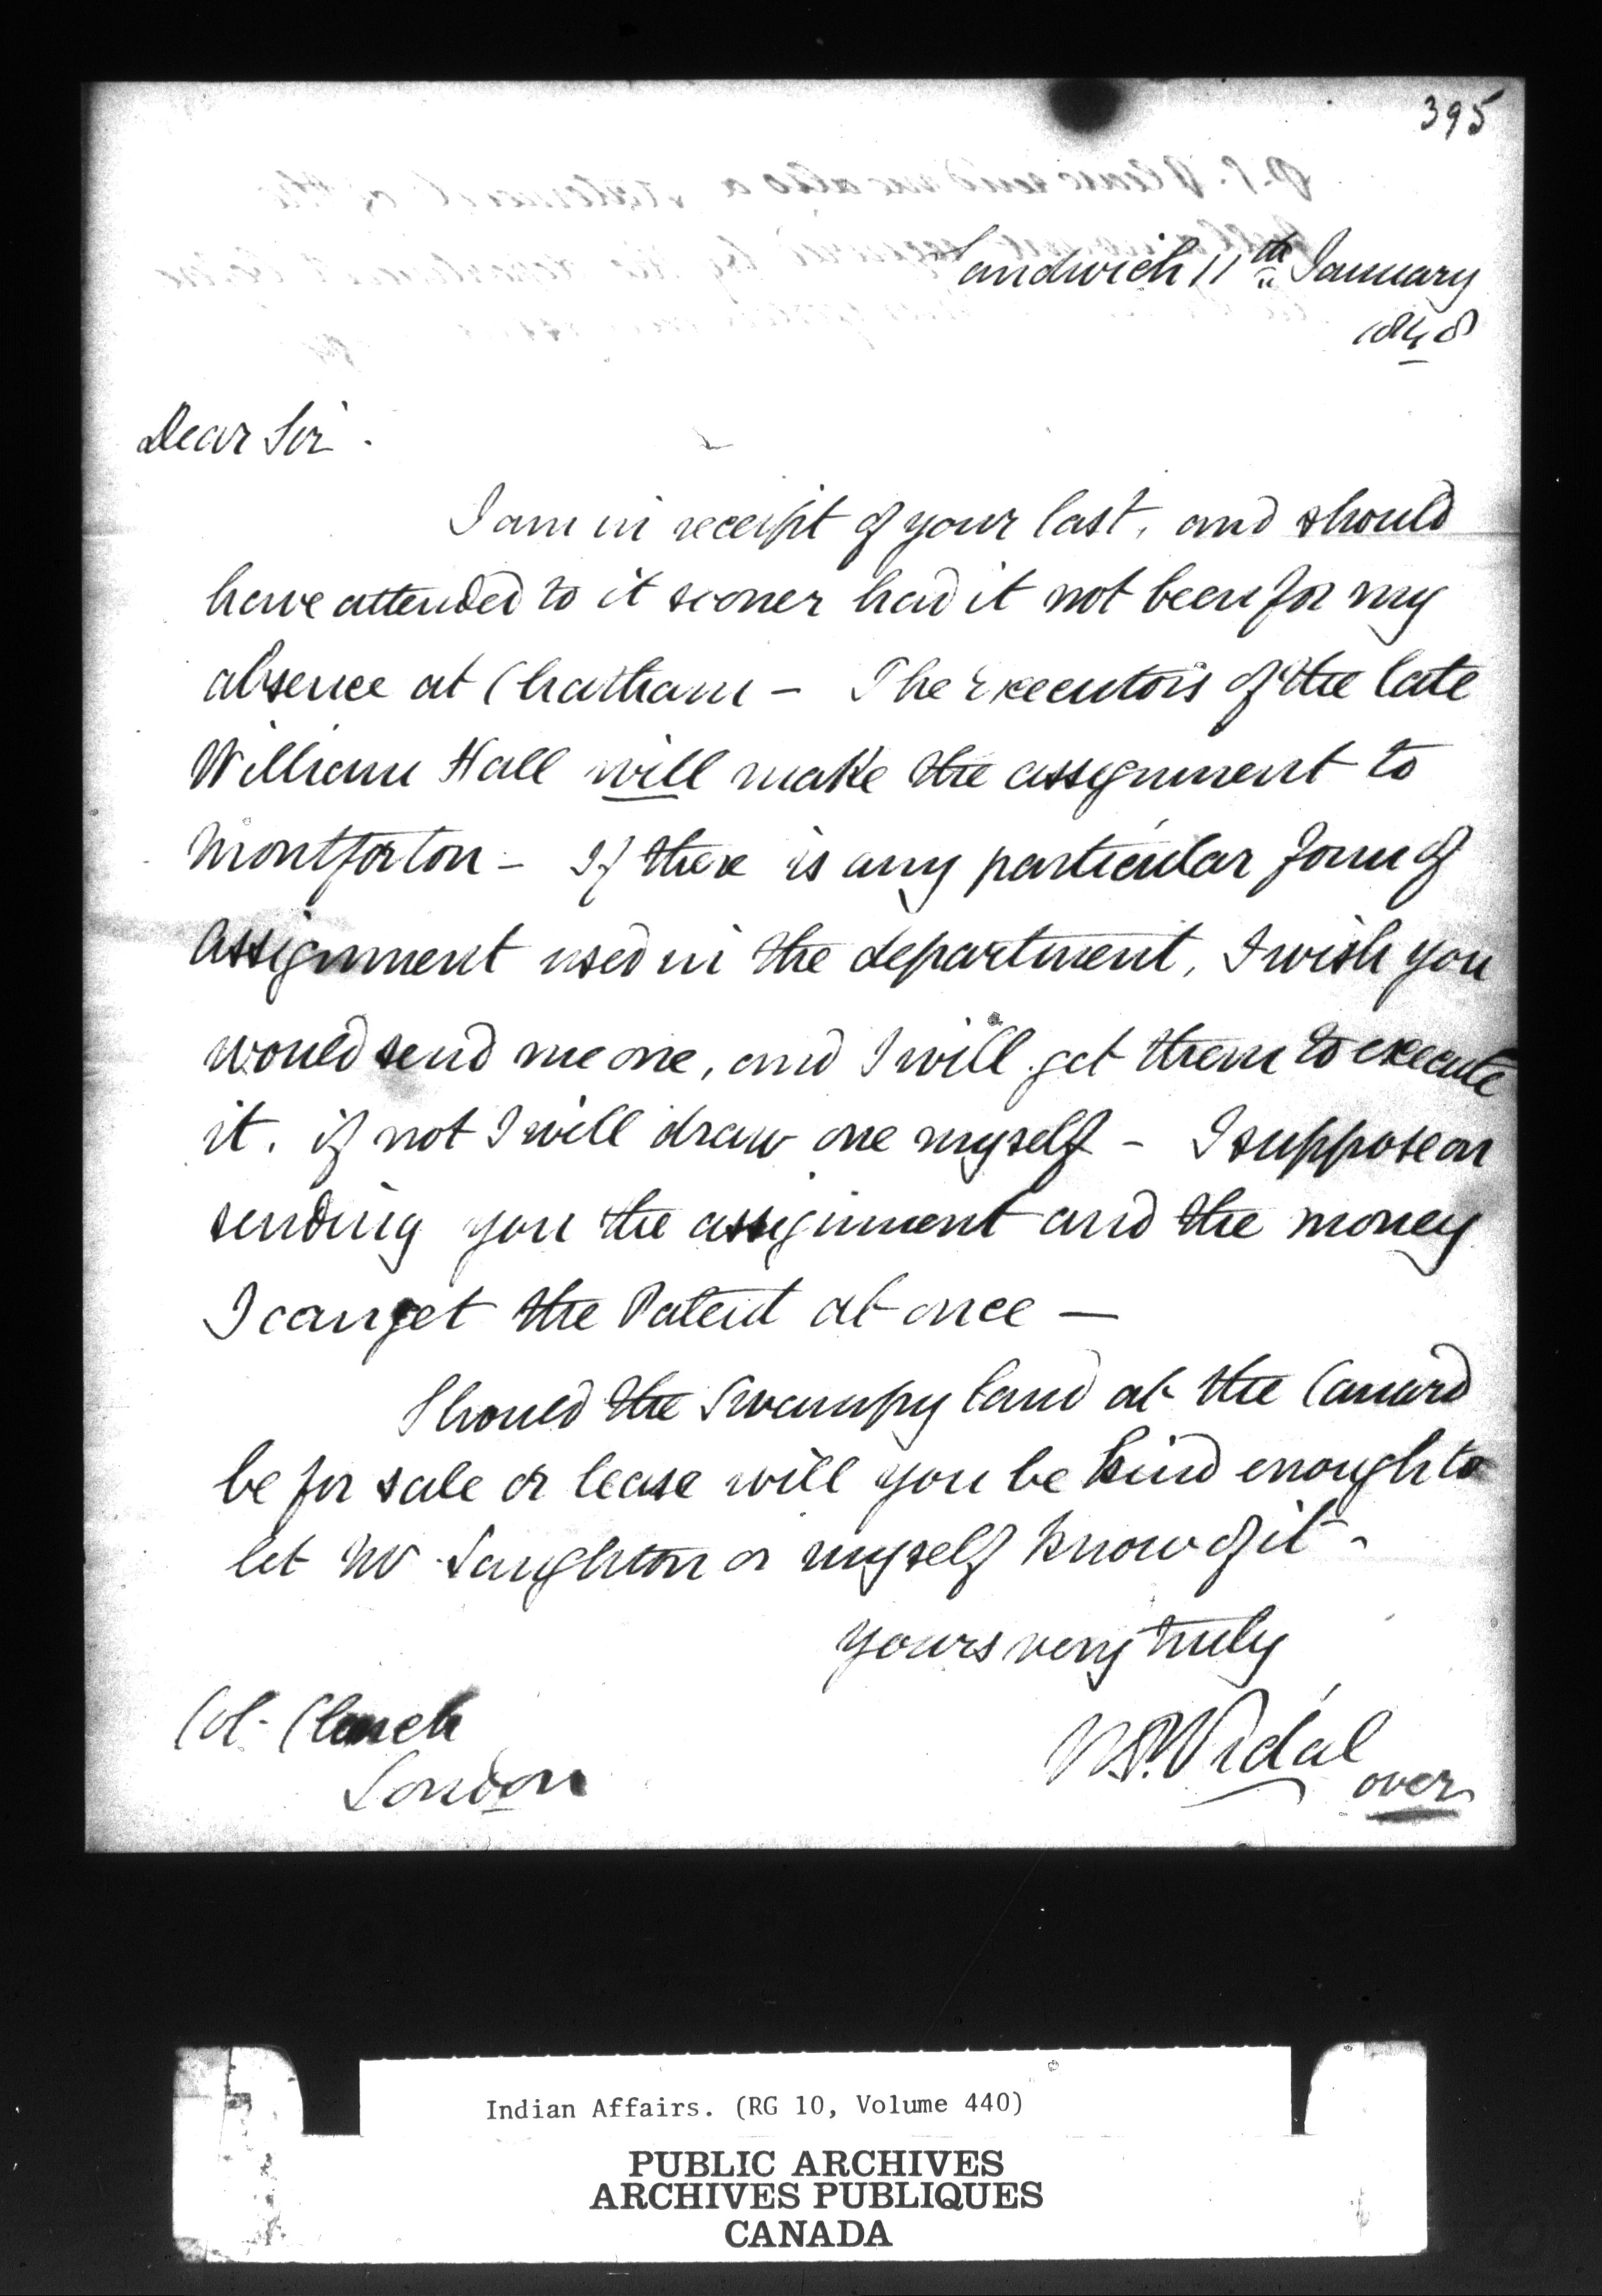 395
Sandwich 11th January
1848
Dear Sir.
I am in receipt of your last, and should
have attended to it sooner had it not been for my
absence at Chatham - The Executors of the late
William Hall will make the assignment to
Montforton - If there is any particular form of
assignment used in the department, I wish you
would send me one, and I will get them to execute
it. if not I will draw one myself - I suppose on
sending you the assignment and the money
I can get the Patent at once —
Should the Swampy land at the Canard
be for sale or lease will you be kind enough to
let Mr Laughton or myself know of it -
yours very truly
Col. Clench
London
Vidal
over
Indian Affairs. (RG 10, Volume 440)
PUBLIC ARCHIVES
ARCHIVES PUBLIQUES
CANADA